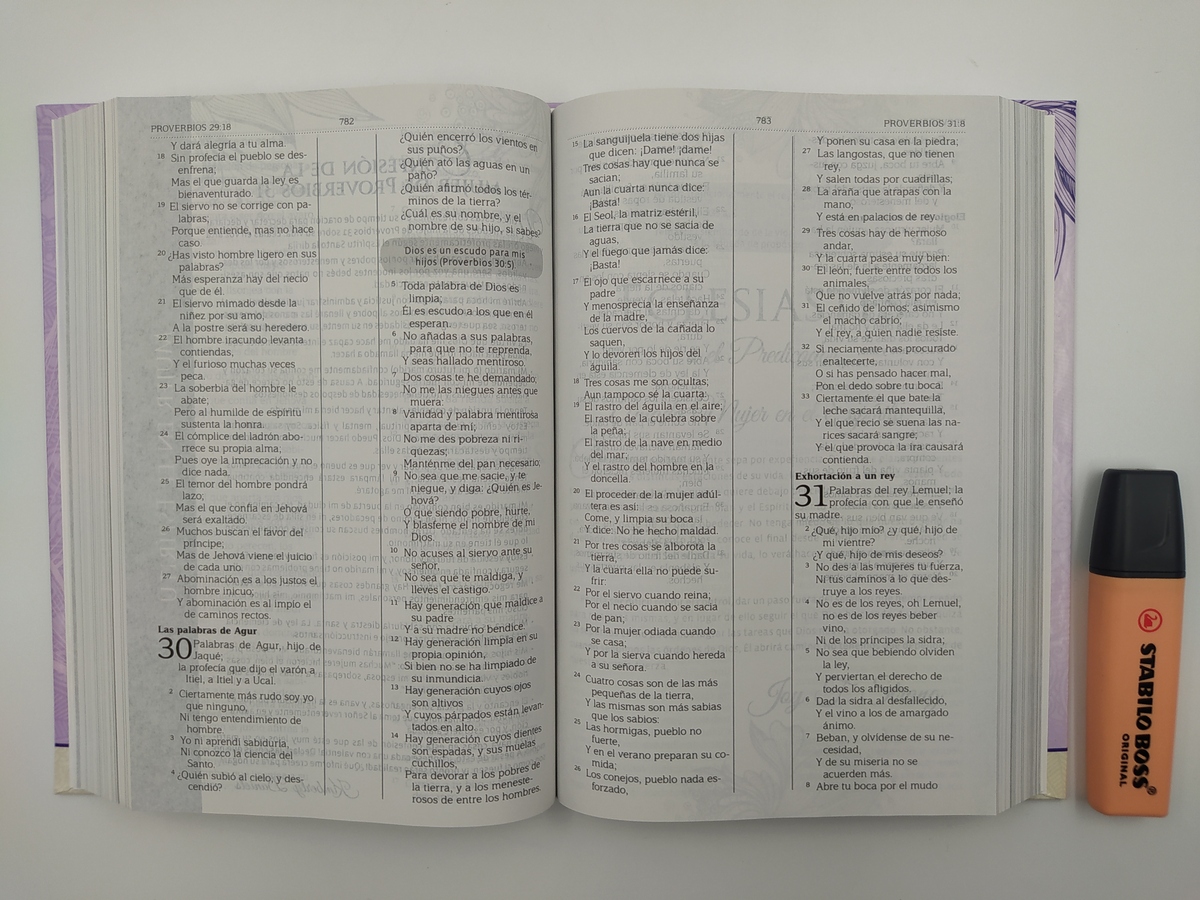 PROVERBIOS 29:18
782
Y dará alegría a tu alma.
18 Sin profecía el pueblo se des-
enfrena;
Mas el que guarda la ley es
bienaventurado.
19 El siervo no se corrige con pa-
labras;
Porque entiende, mas no hace
caso.
20 ¿Has visto hombre ligero en sus
palabras?
Más esperanza hay del necio
que de él.
21 El siervo mimado desde la
niñez por su amo,
A la postre será su heredero.
22 El hombre iracundo levanta
contiendas,
Y el furioso muchas veces
peca.
23 La soberbia del hombre le
abate;
Pero al humilde de espíritu
sustenta la honra.
24 El cómplice del ladrón abo-
rrece su propia alma;
Pues oye la imprecación y no
dice nada.
25 El temor del hombre pondrá
lazo;
Mas el que confía en Jehová
será exaltado.
26 Muchos buscan el favor del
príncipe;
Mas de Jehová viene el juicio
de cada uno.
27 Abominación es a los justos el
hombre inicuo;
Y abominación es al impío el
de caminos rectos.
Las palabras de Agur
30 Palabras de Agur, hijo de
Jaqué;
la profecía que dijo el varón a
Itiel, a Itiel y a Ucal.
2 Ciertamente más rudo soy yo
que ninguno,
Ni tengo entendimiento de
hombre.
3 Yo ni aprendí sabiduría,
Ni conozco la ciencia del
Santo.
4 ¿Quién subió al cielo, y des-
cendió?
¿Quién encerró los vientos en
sus puños?
¿Quién ató las aguas en un
paño?
¿Quién afirmó todos los tér-
minos de la tierra?
¿Cuál es su nombre, y el
nombre de su hijo, si sabes?
Dios es un escudo para mis
hijos (Proverbios 30:5)
5 Toda palabra de Dios es
limpia;
Él es escudo a los que en él
esperan.
6 No añadas a sus palabras,
para que no te reprenda,
Y seas hallado mentiroso.
7 Dos cosas te he demandado;
No me las niegues antes que
muera:
8 Vanidad y palabra mentirosa
aparta de mí;
No me des pobreza ni ri-
quezas;
Manténme del pan necesario;
9 No sea que me sacie, y te
niegue, y diga: ¿Quién es Je-
hová?
O que siendo pobre, hurte,
Y blasfeme el nombre de mi
Dios.
10 No acuses al siervo ante su
señor,
No sea que te maldiga, y
lleves el castigo.
11 Hay generación que maldice a
su padre
Y a su madre no bendice.
12 Hay generación limpia en su
propia opinión,
Si bien no se ha limpiado de
su inmundicia.
13 Hay generación cuyos ojos
son altivos
Y cuyos párpados están levan-
tados en alto.
14 Hay generación cuyos dientes
son espadas, y sus muelas
cuchillos,
Para devorar a los pobres de
la tierra, y a los meneste-
rosos de entre los hombres.
783
PROVERBIOS 31:8
15 La sanguijuela tiene dos hijas
que dicen: ¡Dame! ¡dame!
Tres cosas hay que nunca se
sacian;
Aun la cuarta nunca dice:
¡Basta!
16 El Seol, la matriz estéril,
La tierra que no se sacia de
aguas,
Y el fuego que jamás dice:
¡Basta!
17 El ojo que escarnece a su
padre
Y menosprecia la enseñanza
de la madre,
Los cuervos de la cañada lo
saquen,
Y lo devoren los hijos del
águila.
18 Tres cosas me son ocultas;
Aun tampoco sé la cuarta:
19 El rastro del águila en el aire;
El rastro de la culebra sobre
la peña;
El rastro de la nave en medio
del mar,
Y el rastro del hombre en la
doncella.
20 El proceder de la mujer adúl-
tera es así:
Come, y limpia su boca
Y dice: No he hecho maldad.
21 Por tres cosas se alborota la
tierra,
Y la cuarta ella no puede su-
frir:
22 Por el siervo cuando reina;
Por el necio cuando se sacia
de pan;
23 Por la mujer odiada cuando
se casa;
Y por la sierva cuando hereda
a su señora.
24 Cuatro cosas son de las más
pequeñas de la tierra,
Y las mismas son más sabias
que los sabios:
25 Las hormigas, pueblo no
fuerte,
Y en el verano preparan su co-
mida;
26 Los conejos, pueblo nada es-
forzado,
Y ponen su casa en la piedra;
27 Las langostas, que no tienen
rey,
Y salen todas por cuadrillas;
28 La araña que atrapas con la
mano,
Y está en palacios de rey.
29 Tres cosas hay de hermoso
andar,
Y la cuarta pasea muy bien:
30 El león, fuerte entre todos los
animales,
Que no vuelve atrás por nada;
31 El ceñido de lomos; asimismo
el macho cabrío;
Y el rey, a quien nadie resiste.
32 Si neciamente has procurado
enaltecerte,
O si has pensado hacer mal,
Pon el dedo sobre tu boca.
33 Ciertamente el que bate la
leche sacará mantequilla,
Y el que recio se suena las na-
rices sacará sangre;
Y el que provoca la ira causará
contienda.
Exhortación a un rey
31 Palabras del rey Lemuel; la
profecía con que le enseñó
su madre.
2 ¿Qué, hijo mío? ¿y qué, hijo de
mi vientre?
¿Y qué, hijo de mis deseos?
3 No des a las mujeres tu fuerza,
Ni tus caminos a lo que des-
truye a los reyes.
4 No es de los reyes, oh Lemuel,
no es de los reyes beber
vino,
Ni de los príncipes la sidra;
5 No sea que bebiendo olviden
la ley,
Y perviertan el derecho de
todos los afligidos.
6 Dad la sidra al desfallecido,
Y el vino a los de amargado
ánimo.
7 Beban, y olvídense de su ne-
cesidad,
Y de su miseria no se
acuerden más.
8 Abre tu boca por el mudo
STABILO BOSS®
ORIGINAL